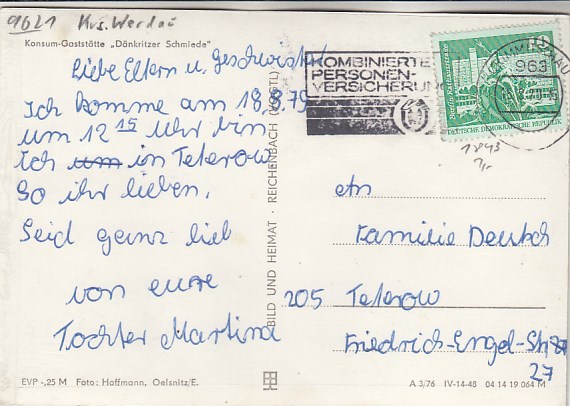 9621 Krs. Werdau
Konsum-Gaststätte „Dönkritzer Schmiede"
Liebe Eltern u. Geschwister
Ich komme am 18.8.79
um 12 15 Uhr bin
Ich um in Teterow
So ihr lieben.
Seid ganz lieb
von eure
Tochter Martina
EVP -,25 M Foto: Hoffmann, Oelsnitz/E.
BILD UND HEIMAT · REICHENBACH (VOGTL)
KOMBINIERTE
PERSONEN-
VERSICHERUNG
963
DEUTSCHE DEMOKRATISCHE REPUBLIK
an
Familie Deutsch
205 Teterow
Friedrich-Engel-Str
27
A 3/76 IV-14-48 04 14 19 064 M